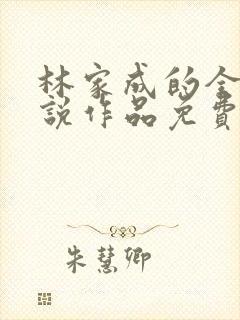 林家成的全
說作品免費
朱慧卿